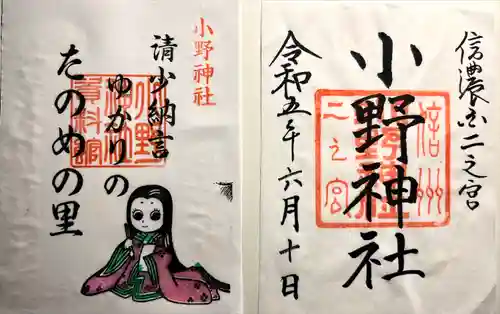 小野神社
請少納言
ゆかりの
たのめの里
信濃国二之宮
小野神社
令和五年六月十日
信州
二之宮